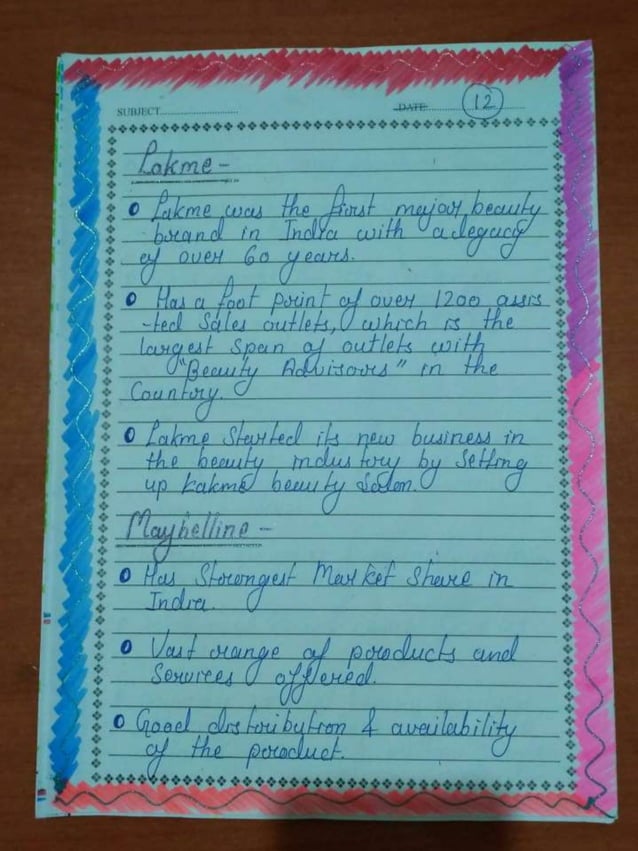 SUBJECT
DATE
12
Lakme -
Lakme was the first major beauty
brand in India with a legacy
of over 60 years.
Has a foot print of over 1200 assis
-ted Sales outlets, which is the
largest Span of outlets with
"Beauty Advisors" in the
Country.
Lakme Started its new business in
the beauty industry by Setting
up Lakme beauty Salon.
Maybelline -
Has Strongest Market Share in
India.
Vast range of products and
Services offered.
Good distribution & availability
of the product.